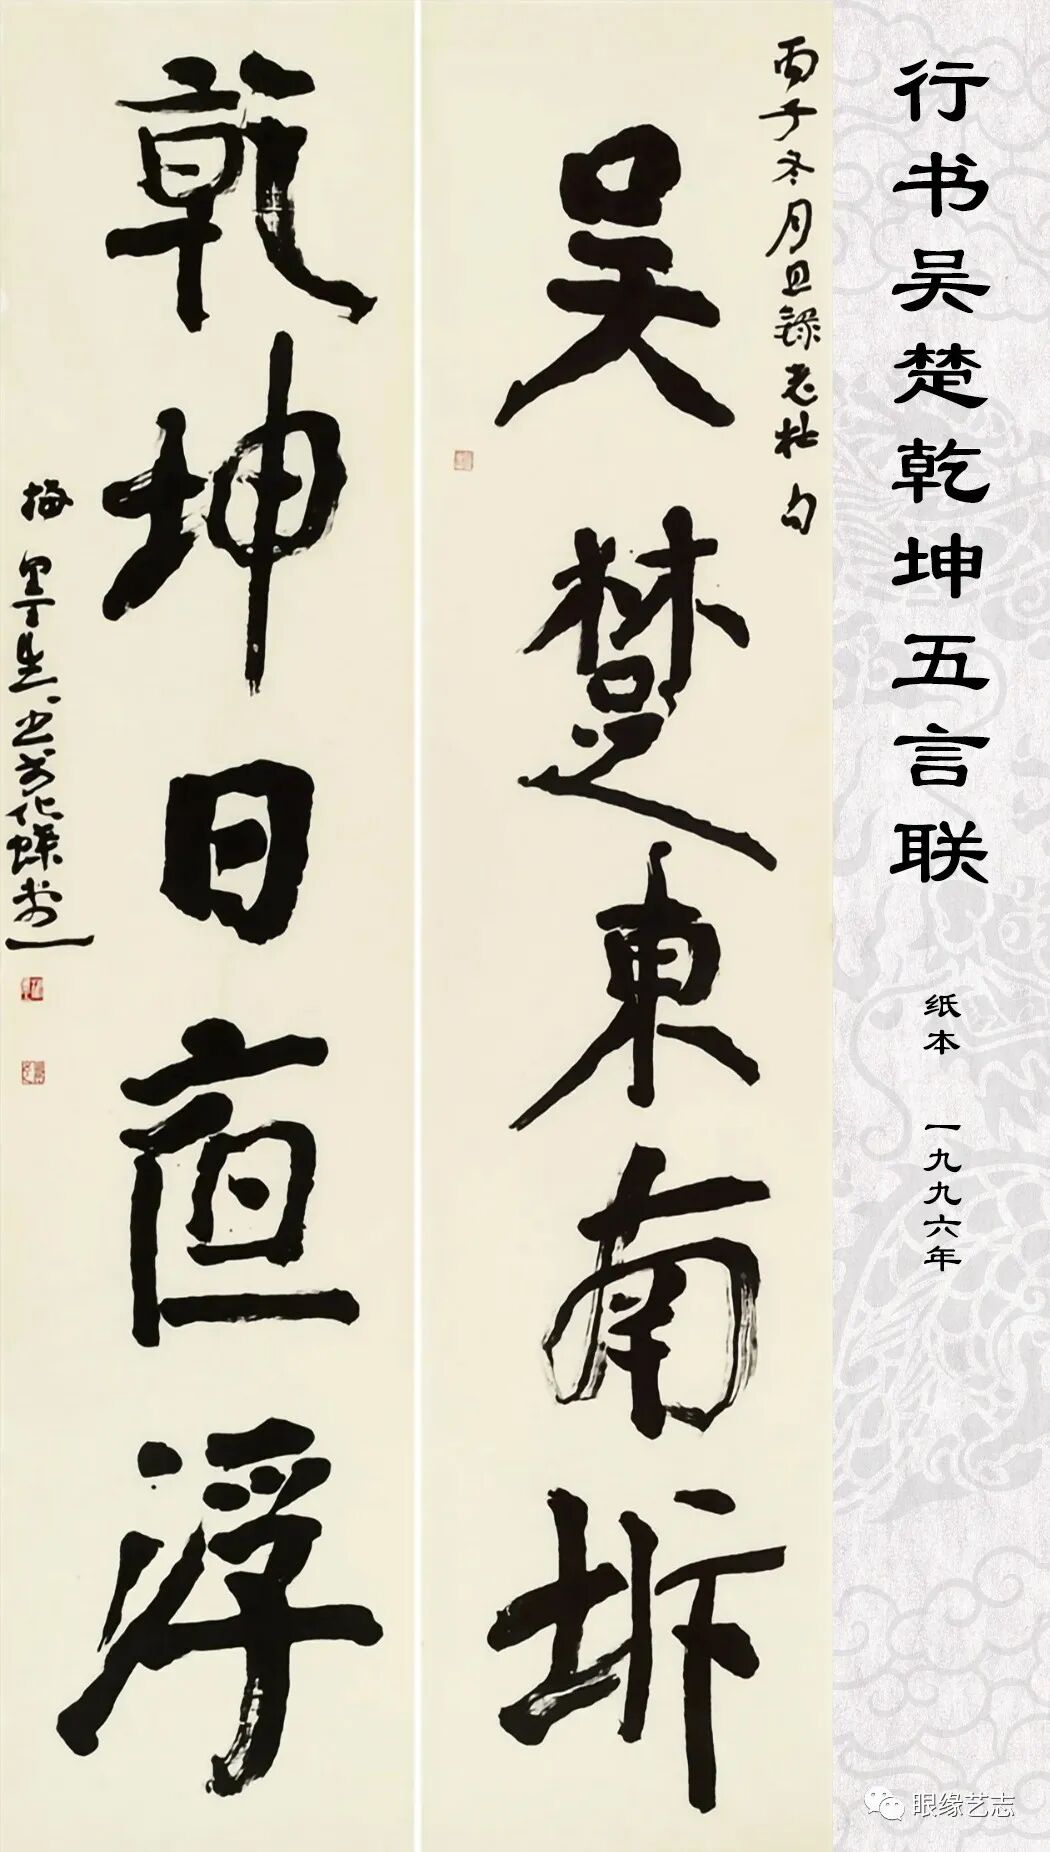 行书吴楚乾坤五言联
纸本 一九九六年
丙子冬月旦錄老杜句
吴楚東南坼
乾坤日亱浮
梅墨生 化蝶
眼缘艺志